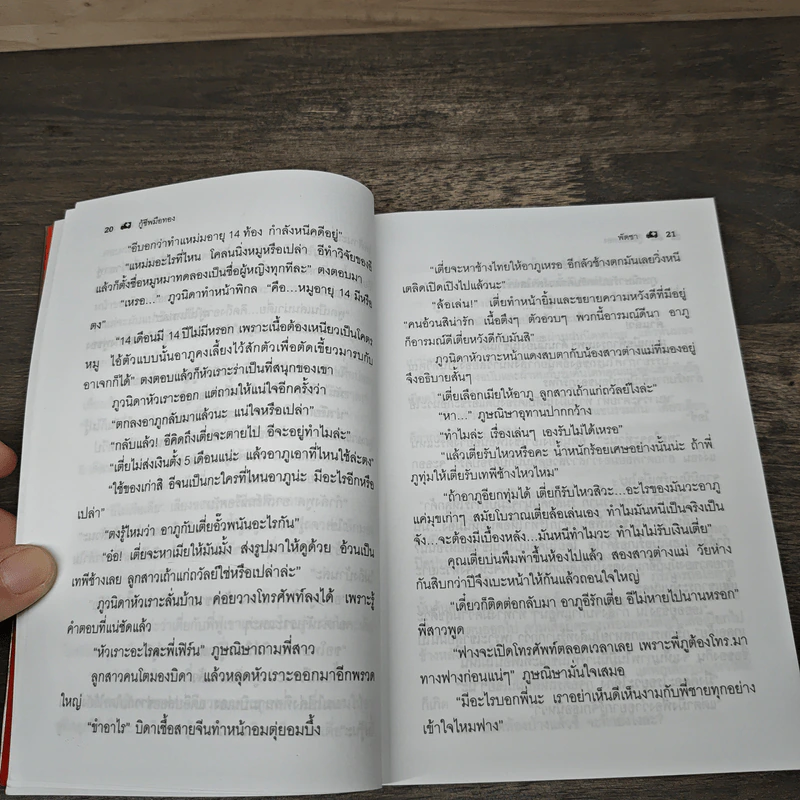 20 กู้ชีพมือทอง
“อีบอกว่าทำแหม่มอายุ 14 ท้อง กำลังหนีคดีอยู่”
“แหม่มอะไรที่ไหน โคลนนิ่งหมูหรือเปล่า อีทำวิจัยของอี
แล้วก็ตั้งชื่อหมูหมาทดลองเป็นชื่อผู้หญิงทุกทีละ” ตงตอบมา
“เหรอ...” ภูวนิดาทำหน้าพิกล “คือ...หมูอายุ 14 มีหรือ
ตง”
“14 เดือนมี 14 ปีไม่มีหรอก เพราะเนื้อต้องเหนียวเป็นโคตร
หมู ไอ้ตัวแบบนั้นอาภูคงเลี้ยงไว้สักตัวเพื่อตัดเขี้ยวมารบกับ
อาเจกก็ได้” ตงตอบแล้วก็หัวเราะร่าเป็นที่สนุกของเขา
ภูวนิดาหัวเราะออก แต่ถามให้แน่ใจอีกครั้งว่า
“ตกลงอาภูกลับมาแล้วนะ แน่ใจหรือเปล่า”
“กลับแล้ว! อีคิดถึงเตี่ยจะตายไป อีจะอยู่ทำไมล่ะ”
“เตี่ยไม่ส่งเงินตั้ง 5 เดือนแน่ะ แล้วอาภูเอาที่ไหนใช้ล่ะตง”
“ใช้ของเก่าสิ อีจนเป็นกะใครที่ไหนอาภูน่ะ มีอะไรอีกหรือ
เปล่า”
“ตงรู้ไหมว่า อาภูกับเตี่ยอั๊วพนันอะไรกัน”
“อ๋อ! เตี่ยจะหาเมียให้มันมั้ง ส่งรูปมาให้ดูด้วย อ้วนเป็น
เทพีช้างเลย ลูกสาวเถ้าแก่ถวัลย์ใช่หรือเปล่าล่ะ”
ภูวนิดาหัวเราะลั่นบ้าน ค่อยวางโทรศัพท์ลงได้ เพราะรู้
คำตอบที่แน่ชัดแล้ว
“หัวเราะอะไรล่ะพี่เฟิร์น” ภูษณิษาถามพี่สาว
ลูกสาวคนโตมองบิดา แล้วหลุดหัวเราะออกมาอีกพรวด
ใหญ่
“ขำอาไร” บิดาเชื้อสายจีนทำหน้าอมตุ่ยยอมบึ้ง
พัดชา 21
“เตี่ยจะหาช้างไทยให้อาภูเหรอ อีกลัวช้างตกมันเลยวิ่งหนี
เตลิดเปิดเปิงไปแล้วนะ”
“ล้อเล่น!” เตี่ยทำหน้ายิ้มและขยายความหวังดีที่มีอยู่
“คนอ้วนสิน่ารัก เนื้อตึงๆ ตัวอวบๆ พวกนี้อารมณ์ดีนา อาภู
ก็อารมณ์ดีเตี่ยหวังดีกับมันสิ”
ภูวนิดาหัวเราะหน้าแดงสบตากับน้องสาวต่างแม่ที่มองอยู่
จึงอธิบายสั้นๆ
“เตี่ยเลือกเมียให้อาภู ลูกสาวเถ้าแก่ถวัลย์ไงล่ะ”
“หา...” ภูษณิษาอุทานปากกว้าง
“ทำไมล่ะ เรื่องเล่นๆ เองรับไม่ได้เหรอ”
“แล้วเตี่ยรับไหวหรือคะ น้ำหนักร้อยเศษอย่างนั้นน่ะ ถ้าพี่
ภูทุ่มให้เตี่ยรับเทพีช้างไหวไหม”
“ถ้าอาภูอียกทุ่มได้ เตี่ยก็รับไหวสิวะ...อะไรของมันวะอาภู
แค่มุขเก่าๆ สมัยโบราณเตี่ยล้อเล่นเอง ทำไมมันหนีเป็นจริงเป็น
จัง...จะต้องมีเบื้องหลัง...มันหนีทำไมวะ ทำไมไม่รับเงินเตี่ย”
คุณเตี่ยบ่นพึมพำขึ้นห้องไปแล้ว สองสาวต่างแม่ วัยห่าง
กันสิบกว่าปีจึงเบะหน้าให้กันแล้วถอนใจใหญ่
“เดี๋ยวก็ติดต่อกลับมา อาภูอีรักเตี่ย อีไม่หายไปนานหรอก”
พี่สาวพูด
“ฟางจะเปิดโทรศัพท์ตลอดเวลาเลย เพราะพี่ภูต้องโทร.มา
ทางฟางก่อนแน่ๆ” ภูษณิษามั่นใจเสมอ
“มีอะไรบอกพี่นะ เราอย่าเห็นดีเห็นงามกับพี่ชายทุกอย่าง
เข้าใจไหมฟาง”